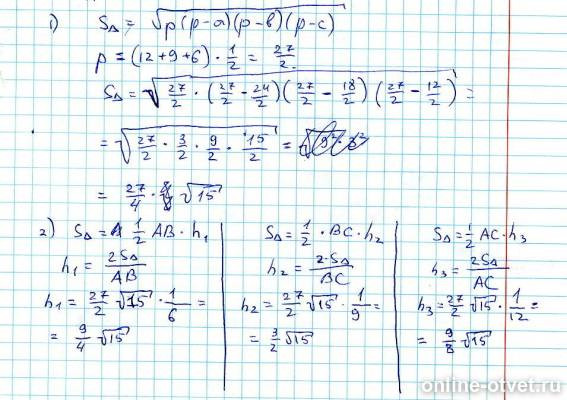 1) S△ = √p(p-a)(p-b)(p-c)
p = (12+9+6) · 1/2 = 27/2.
S△ = √27/2 · (27/2 - 24/2)(27/2 - 18/2)(27/2 - 12/2) =
= √27/2 · 3/2 · 9/2 · 15/2 =
= 27/4 · √15
2) S△ = 1/2 AB · h₁
h₁ = 2S△/AB
h₁ = 27/2 √15 · 1/6 =
= 9/4 √15
S△ = 1/2 · BC · h₂
h₂ = 2·S△/BC
h₂ = 27/2 √15 · 1/9 =
= 3/2 √15
S△ = 1/2 AC · h₃
h₃ = 2S△/AC
h₃ = 27/2 √15 · 1/12 =
= 9/8 √15
online-otvet.ru